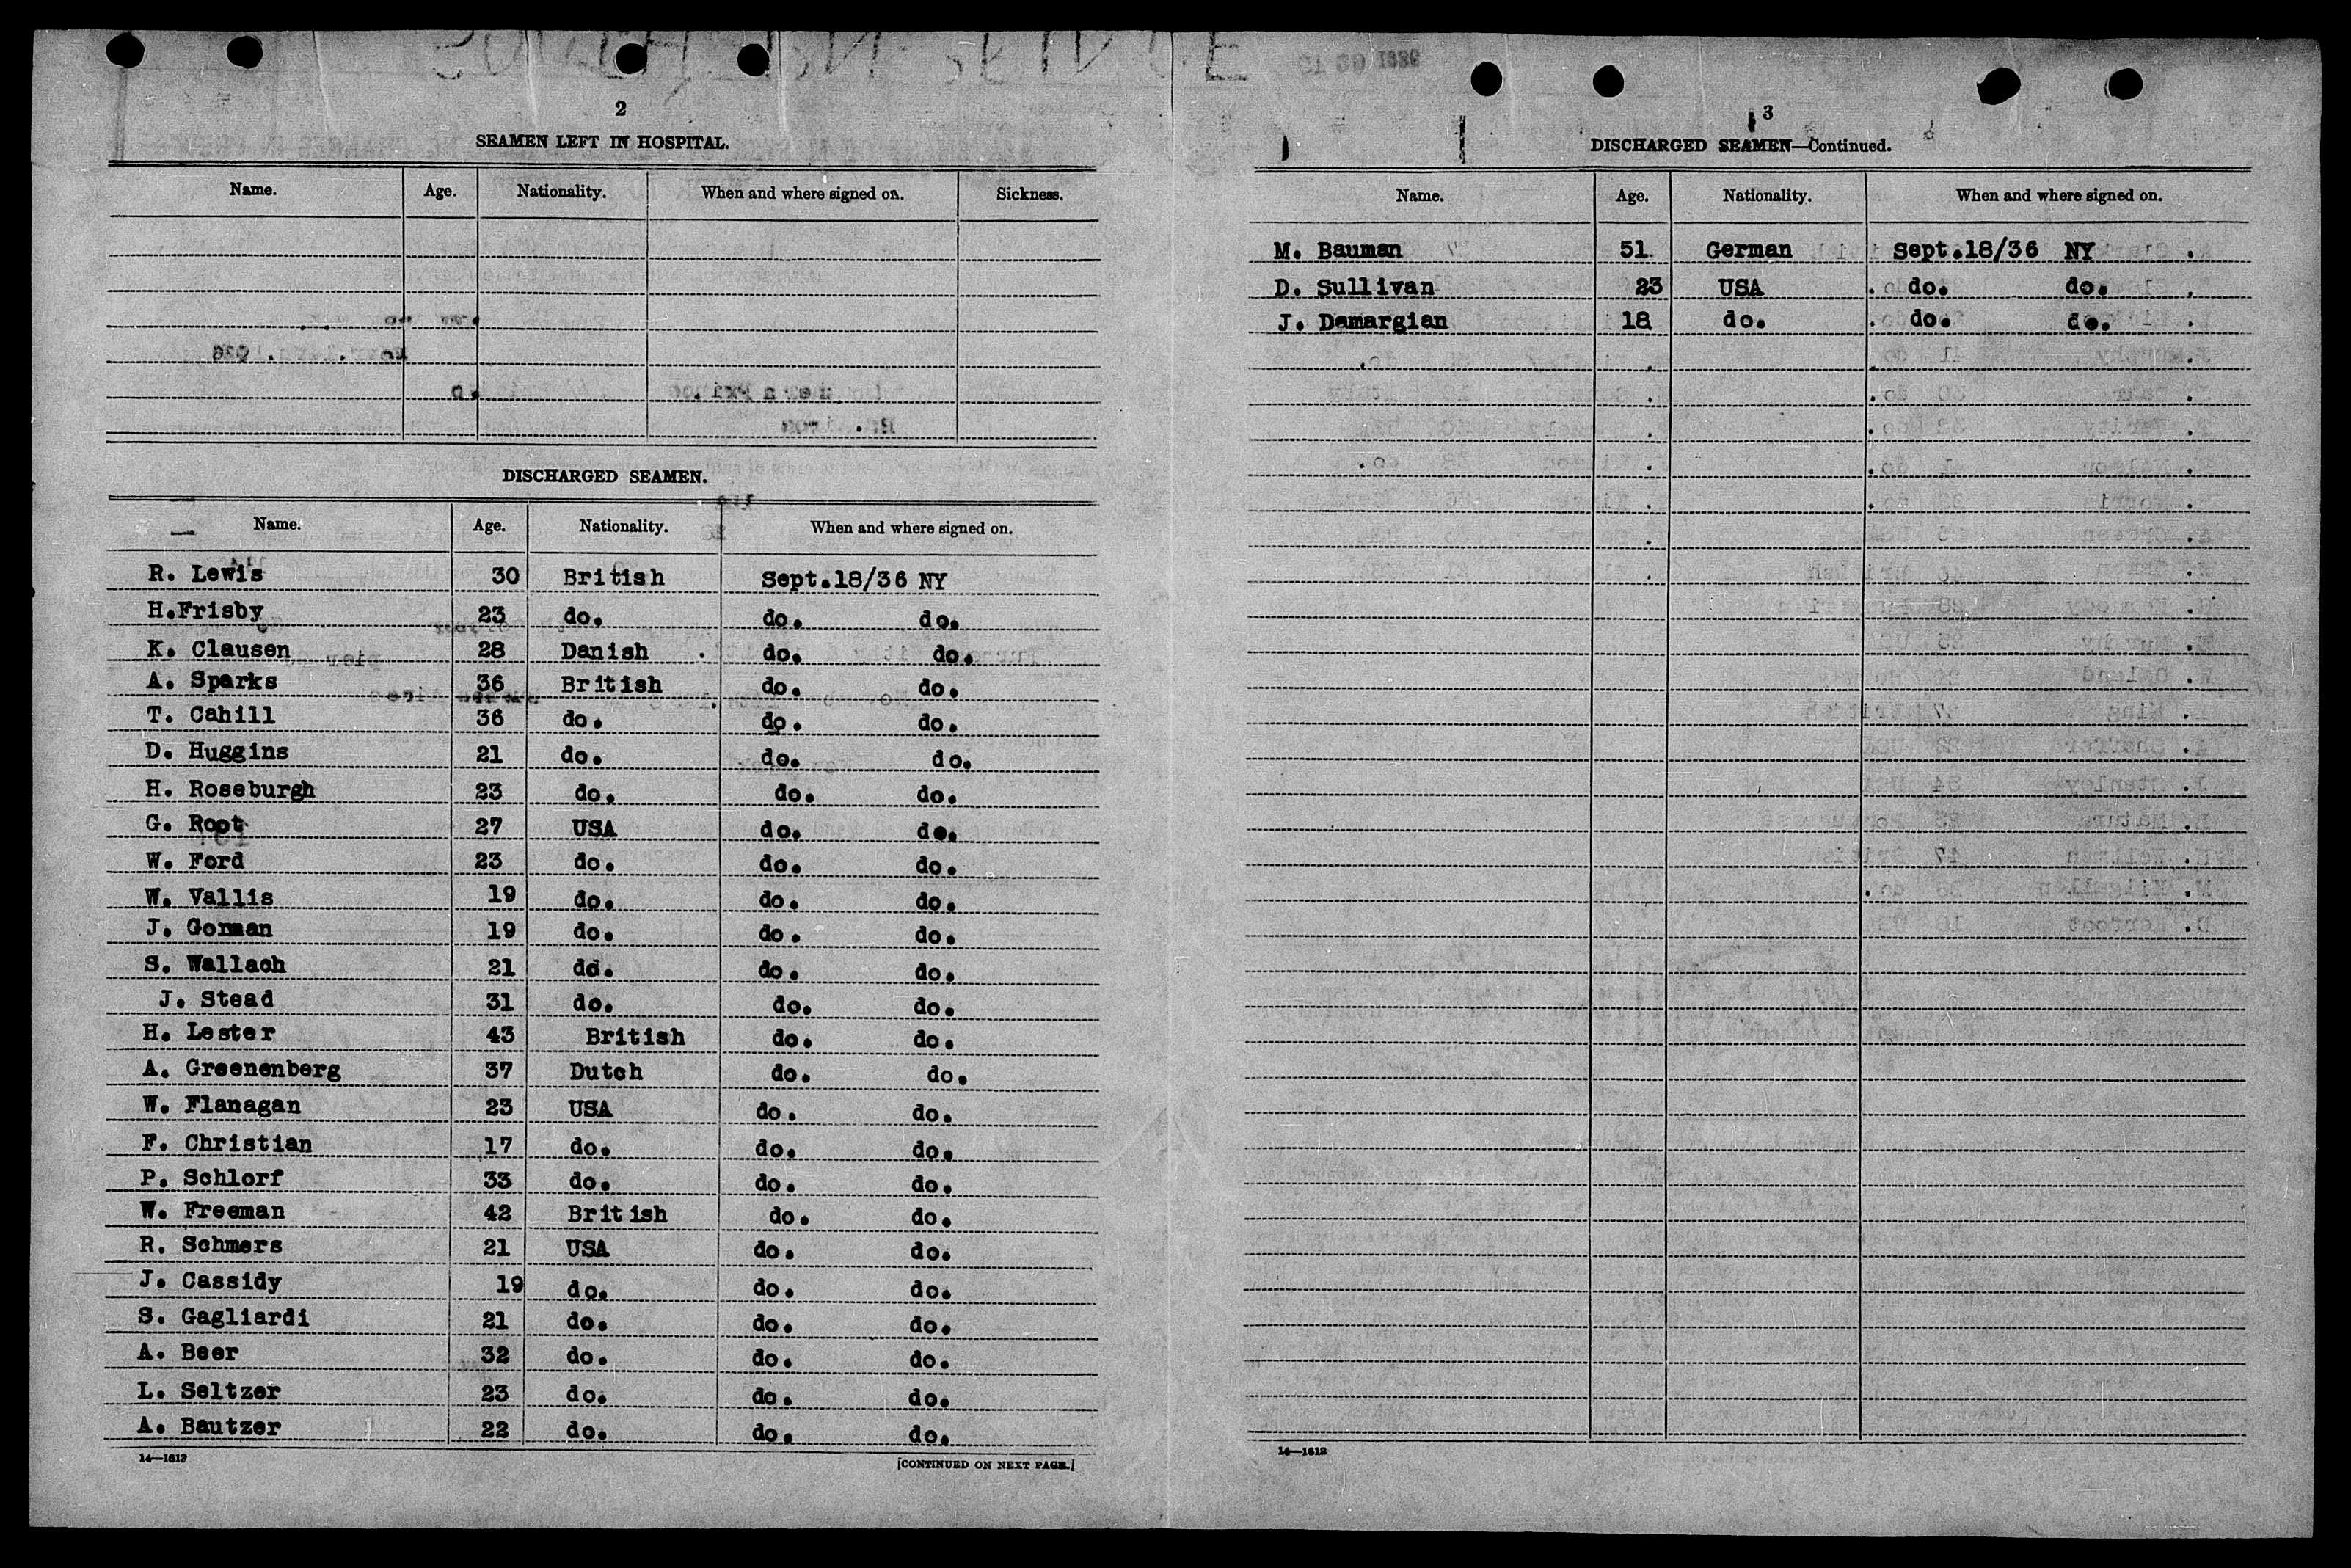 2
SEAMEN LEFT IN HOSPITAL.
Name. Age. Nationality. When and where signed on. Sickness.
DISCHARGED SEAMEN.
Name. Age. Nationality. When and where signed on.
R. Lewis 30 British Sept.18/36 NY
H.Frisby 23 do. do. do.
K. Clausen 28 Danish do. do.
A. Sparks 36 British do. do.
T. Cahill 36 do. do. do.
D. Huggins 21 do. do. do.
H. Roseburgh 23 do. do. do.
G. Root 27 USA do. do.
W. Ford 23 do. do. do.
W. Vallis 19 do. do. do.
J. Gorman 19 do. do. do.
S. Wallach 21 dd. do. do.
J. Stead 31 do. do. do.
H. Lester 43 British do. do.
A. Greenenberg 37 Dutch do. do.
W. Flanagan 23 USA do. do.
F. Christian 17 do. do. do.
P. Schlorf 33 do. do. do.
W. Freeman 42 British do. do.
R. Schmers 21 USA do. do.
J. Cassidy 19 do. do. do.
S. Gagliardi 21 do. do. do.
A. Beer 32 do. do. do.
L. Seltzer 23 do. do. do.
A. Bautzer 22 do. do. do.
14—1612
[CONTINUED ON NEXT PAGE.]
3
DISCHARGED SEAMEN—Continued.
Name. Age. Nationality. When and where signed on.
M. Bauman 51 German Sept.18/36 NY
D. Sullivan 23 USA do. do.
J. Damargian 18 do. do. do.
14—1612